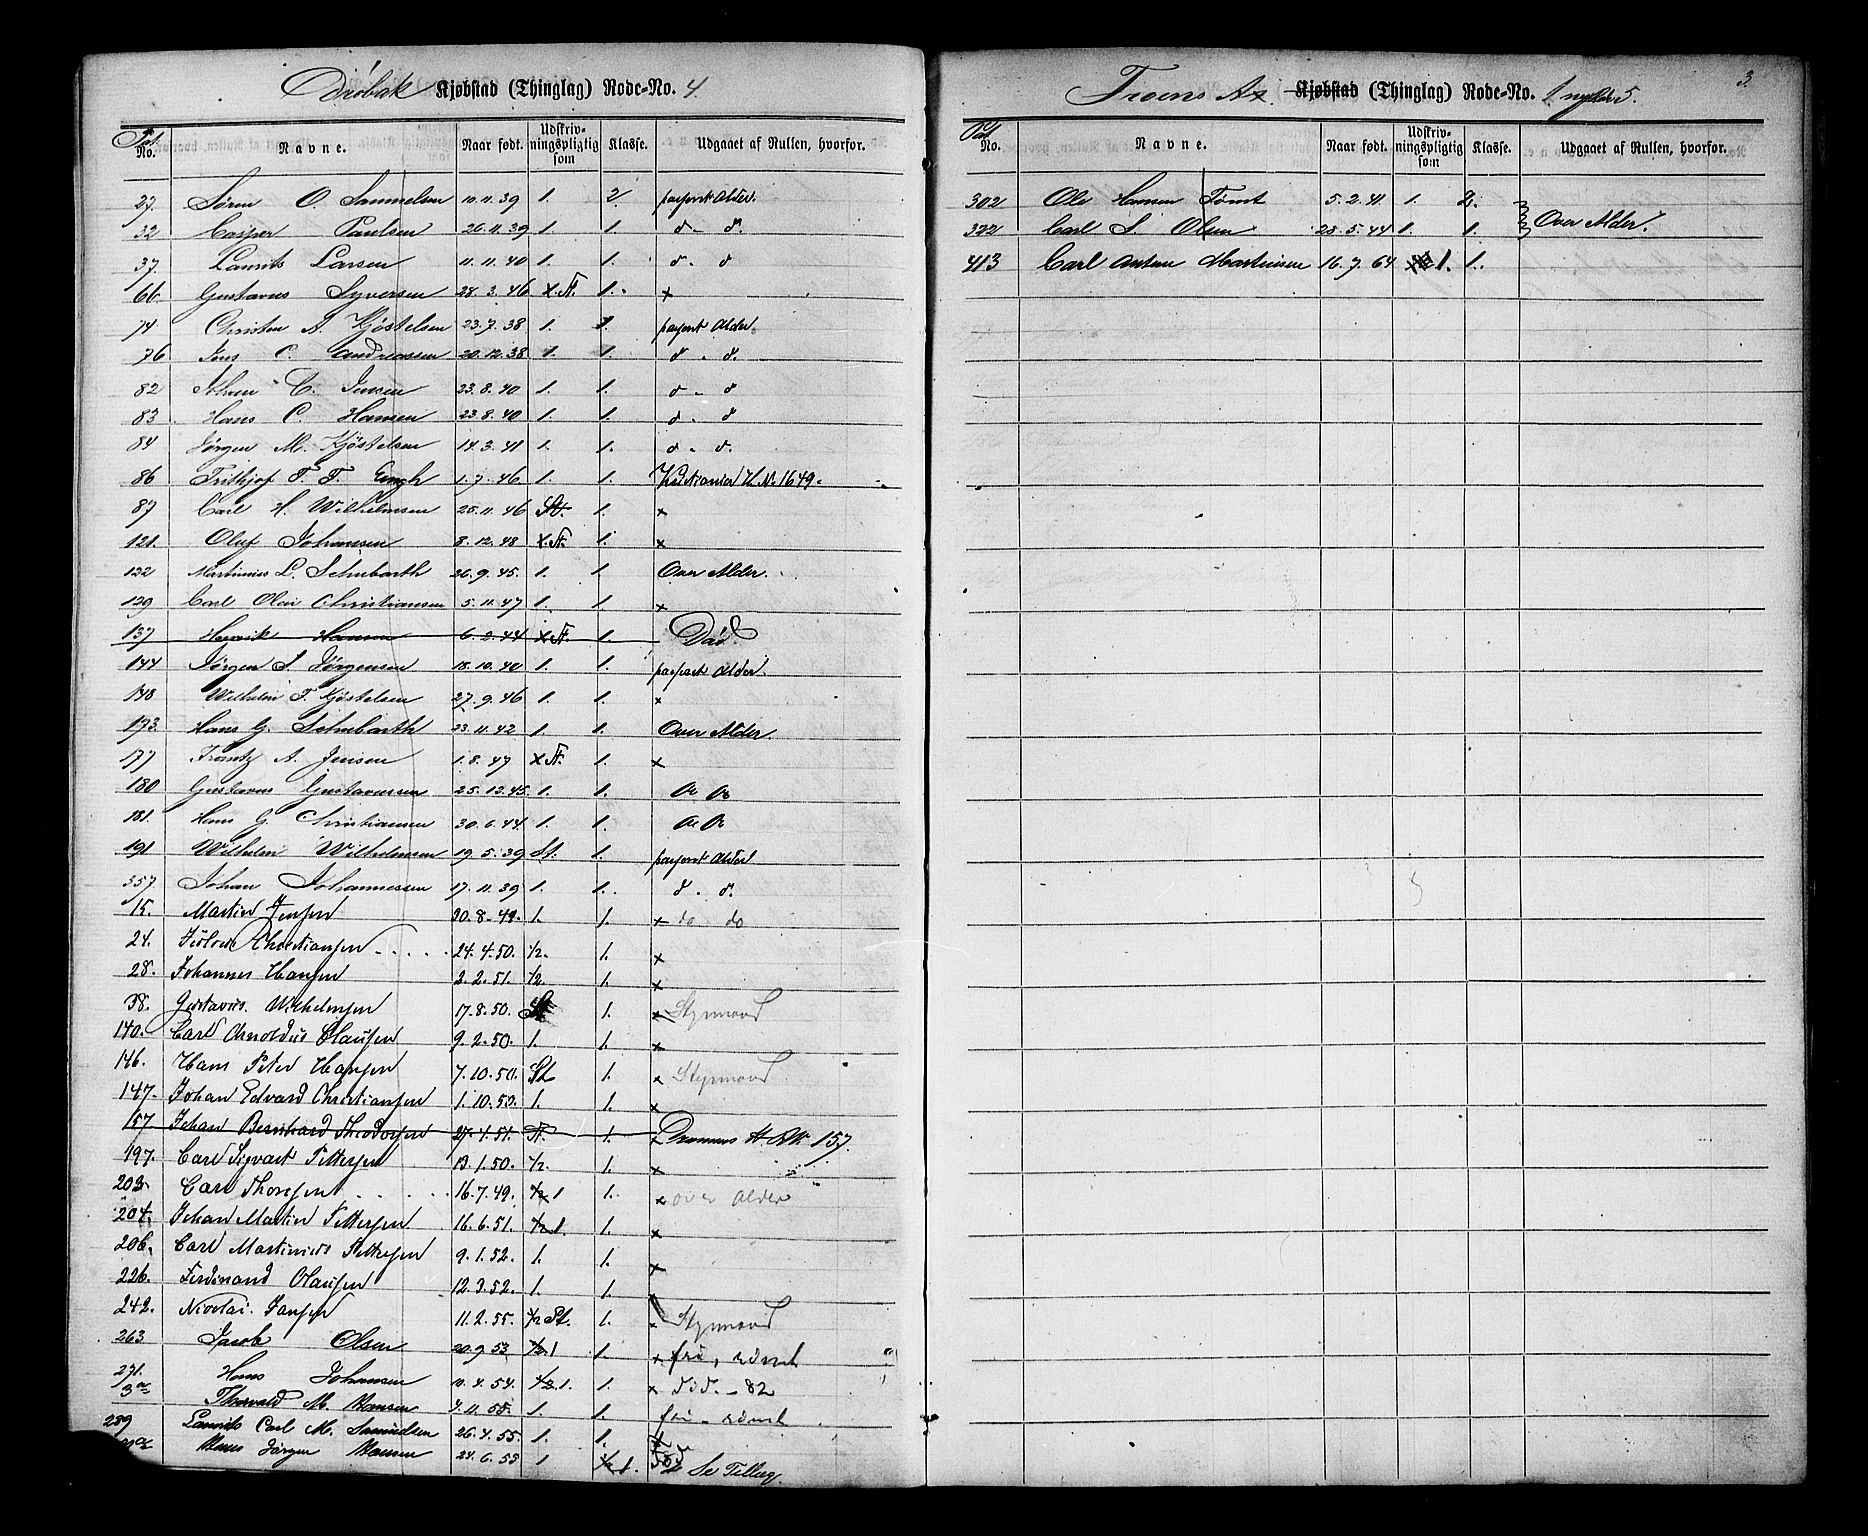 Drøbak Kjøbstad (Thinglag) Rode-No. 4
Pat. No. Navne. Naar født. Udskrivningspligtig som Klasse. Udgaaet af Rullen, hvorfor.
27. Søren O. Samuelsen 10.11.39 1. 2. passert Alder.
32 Casper Paulsen 26.11.39 1. 1. d - d.
37. Laurits Larsen 11.11.40 1. 1. d. d
66 Gustavus Syversen 28.3.46 x.St. 1. x
74 Christen A. Kjøstelsen 23.7.38 1. 1. passert Alder.
76 Jens C. Andreassen 20.12.38 1. 1. d. d.
82 Johan C. Jensen 23.8.40 1. 1. d - d
83 Hans C. Hansen 23.8.40 1. 1. d. d
84 Jørgen M. Kjøstelsen 14.3.41 1. 1. d. d.
86 Frithjof F. F. Engh 1.7.46 1. 1. Kristiania H. No 1649.
87 Carl H. Wilhelmsen 25.11.46 St. 1. x
121. Oluf Johansen 8.12.48 x.St. 1. x
122 Martinius L. Schubarth 26.9.45. 1. 1 Over Alder.
129 Carl Olai Christiansen 5.11.47 1. 1. x
137 Henrik Hansen 6.2.44 x St. 1. Død
144 Jørgen S. Jørgensen 18.10.40 1. 1. passert Alder.
148 Wilhelm F. Kjøstelsen 27.9.46 1. 1. x
173. Hans G. Schubarth 23.11.42 1. 1. Over Alder.
177 Frantz A. Jensen 1.8.47 x St. 1. x
180 Gustavus Gustavussen 25.12.45. 1. 1. do do
181. Hans G. Christiansen 30.6.44. 1. 1. do do
191 Wilhelm Wilhelmsen 19.5.39 St. 1. passert Alder
357 Johan Johannessen 17.11.39 1. 1. d. d.
15. Martin Jensen 30.8.49. 1. 1. x do do
24. Christiansen 24.4.50. 1/2. 1. x
28. Johannes Hansen 2.2.51. 1/2 1. x
38. Gustavus. Wilhelmsen 17.8.50. St 1. x Styrmand
140. Carl Arnoldus Olausen 9.2.50. 1. 1. x
146. Hans Peter Hansen 7.10.50. St 1. x Styrmand
147. Johan Edvard Christiansen 1.10.50. 1. 1. x
157 Johan Bernhard Theodorsen 27.4.51. St. 1. Drammens H. No. 157.
197. Carl Sigvart Pettersen 13.1.50. 1/2. 1. x
203. Carl Thoresen 16.7.49. 1/2 1 1. x over Alder
204. Johan Martin Pettersen 16.6.51. 1/2 1. 1. x
206. Carl Martinius Pettersen 9.1.52. 1. 1. x
226. Ferdinand Olausen 12.3.52. 1. 1.
242. Nicolai Jansen 11.2.55. 1/2 St. 1. Styrmand
263 Jacob Olsen 20.9.53 1/2 1 1. x fri,
271. Hans Johansen 10.4.54. 1/2 1. 1. x død. - 82
3 a Thorvald M. Hansen 4.11.55. 1. 1. fri -
289 Laurits Carl M. Samuelsen 26.4.55. 1. 1.
Hans Jørgen Hansen 24.6.55 1 1/2 1. Se Tillæg.
3.
Froens A. Kjøbstad (Thinglag) Rode-No. 1 5.
Pat. No. Navne. Naar født. Udskrivningspligtig som Klasse. Udgaaet af Rullen, hvorfor.
302 Ole Hansen Tømt 5.2.41 1. 2.
322 Carl S. Olsen 28.5.44 1. 1. Over Alder.
413 Carl Anton Martinsen 16.7.64 1. 1.